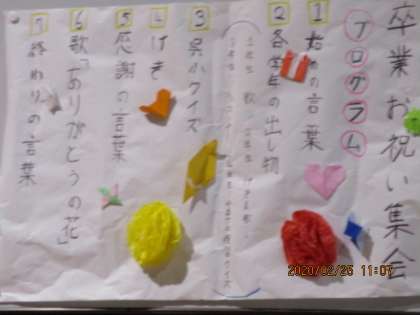 卒業お祝い集会
プログラム
1 始めの言葉
2 各学年の出し物
3 呉小クイズ
4 げき
5 感謝の言葉
6 歌「ありがとうの花」
7 終わりの言葉
2020/02/26 11:07